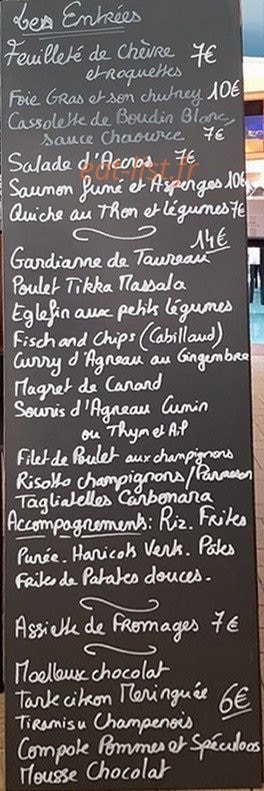 Les Entrées
Feuilleté de Chèvre 7€
et roquettes
Foie Gras et son chutney 10€
Cassolette de Boudin Blanc,
sauce Chaource 7€
Salade d'Accras 7€
eat-list.fr
Saumon fumé et Asperges 10€
Quiche au Thon et légumes 7€
14€
Gardianne de Taureau
Poulet Tikka Massala
Eglefin aux petits légumes
Fisch and Chips (Cabillaud)
Curry d'Agneau au Gingembre
Magret de Canard
Souris d'Agneau Cumin
ou Thym et Ail
Filet de Poulet aux champignons
Risotto champignons/Parmesan
Tagliatelles Carbonara
Accompagnements: Riz. Frites
Purée. Haricots Verts. Pâtes
Frites de Patates douces.
Assiette de Fromages 7€
Moelleux chocolat
Tarte citron Meringuée 6€
Tiramisu Champenois
Compote Pommes et Spéculoos
Mousse Chocolat